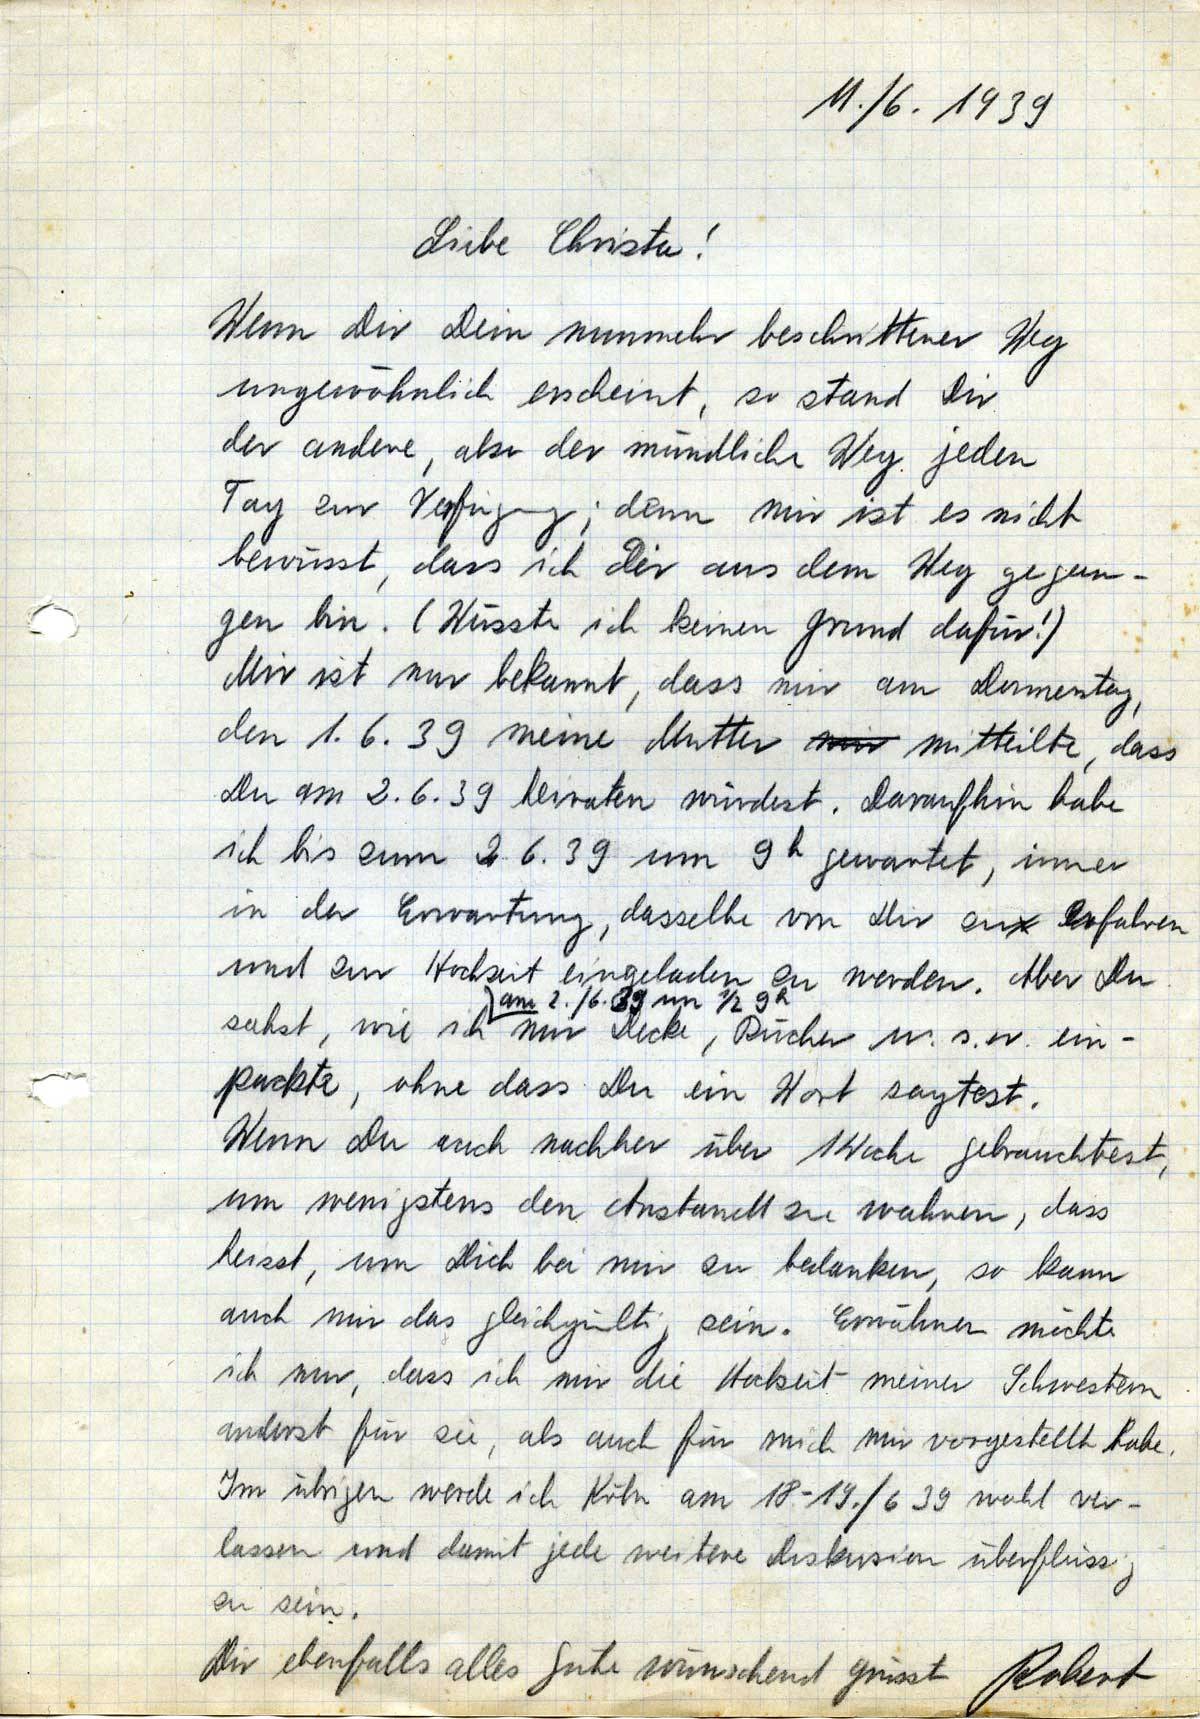 11./6. 1939
Liebe Christa!
Wenn Dir Dein nunmehr beschrittener Weg
ungewöhnlich erscheint, so stand Dir
der andere, also der mündliche Weg jeden
Tag zur Verfügung; denn mir ist es nicht
bewusst, dass ich Dir aus dem Weg gegan-
gen bin. (Wüsste ich keinen Grund dafür!)
Mir ist nur bekannt, dass mir am Donnerstag,
den 1. 6. 39 meine Mutter mir mitteilte, dass
Du am 2. 6. 39 heiraten würdest. Daraufhin habe
ich bis zum 2. 6. 39 um 9h gewartet, immer
in der Erwartung, dasselbe von Dir zu erfahren
und zur Hochzeit eingeladen zu werden. Aber Du
am 2./6. 39 um ½ 9h
sahst, wie ich nur Decke, Bücher u. s. w. ein-
packte, ohne dass Du ein Wort sagtest.
Wenn Du auch nachher über 1 Woche gebrauchtest,
um wenigstens den Anstandt zu wahren, dass
heisst, um Dich bei mir zu bedanken, so kann
auch mir das gleichgültig sein. Erwähnen möchte
ich nur, dass ich mir die Hochzeit meiner Schwestern
anderst für sie, als auch für mich mir vorgestellt habe.
Im übrigen werde ich Köln am 18-19./6 39 wohl ver-
lassen und damit jede weitere Diskusion überflüssig
zu sein.
Dir ebenfalls alles Gute wünschend grüsst Robert